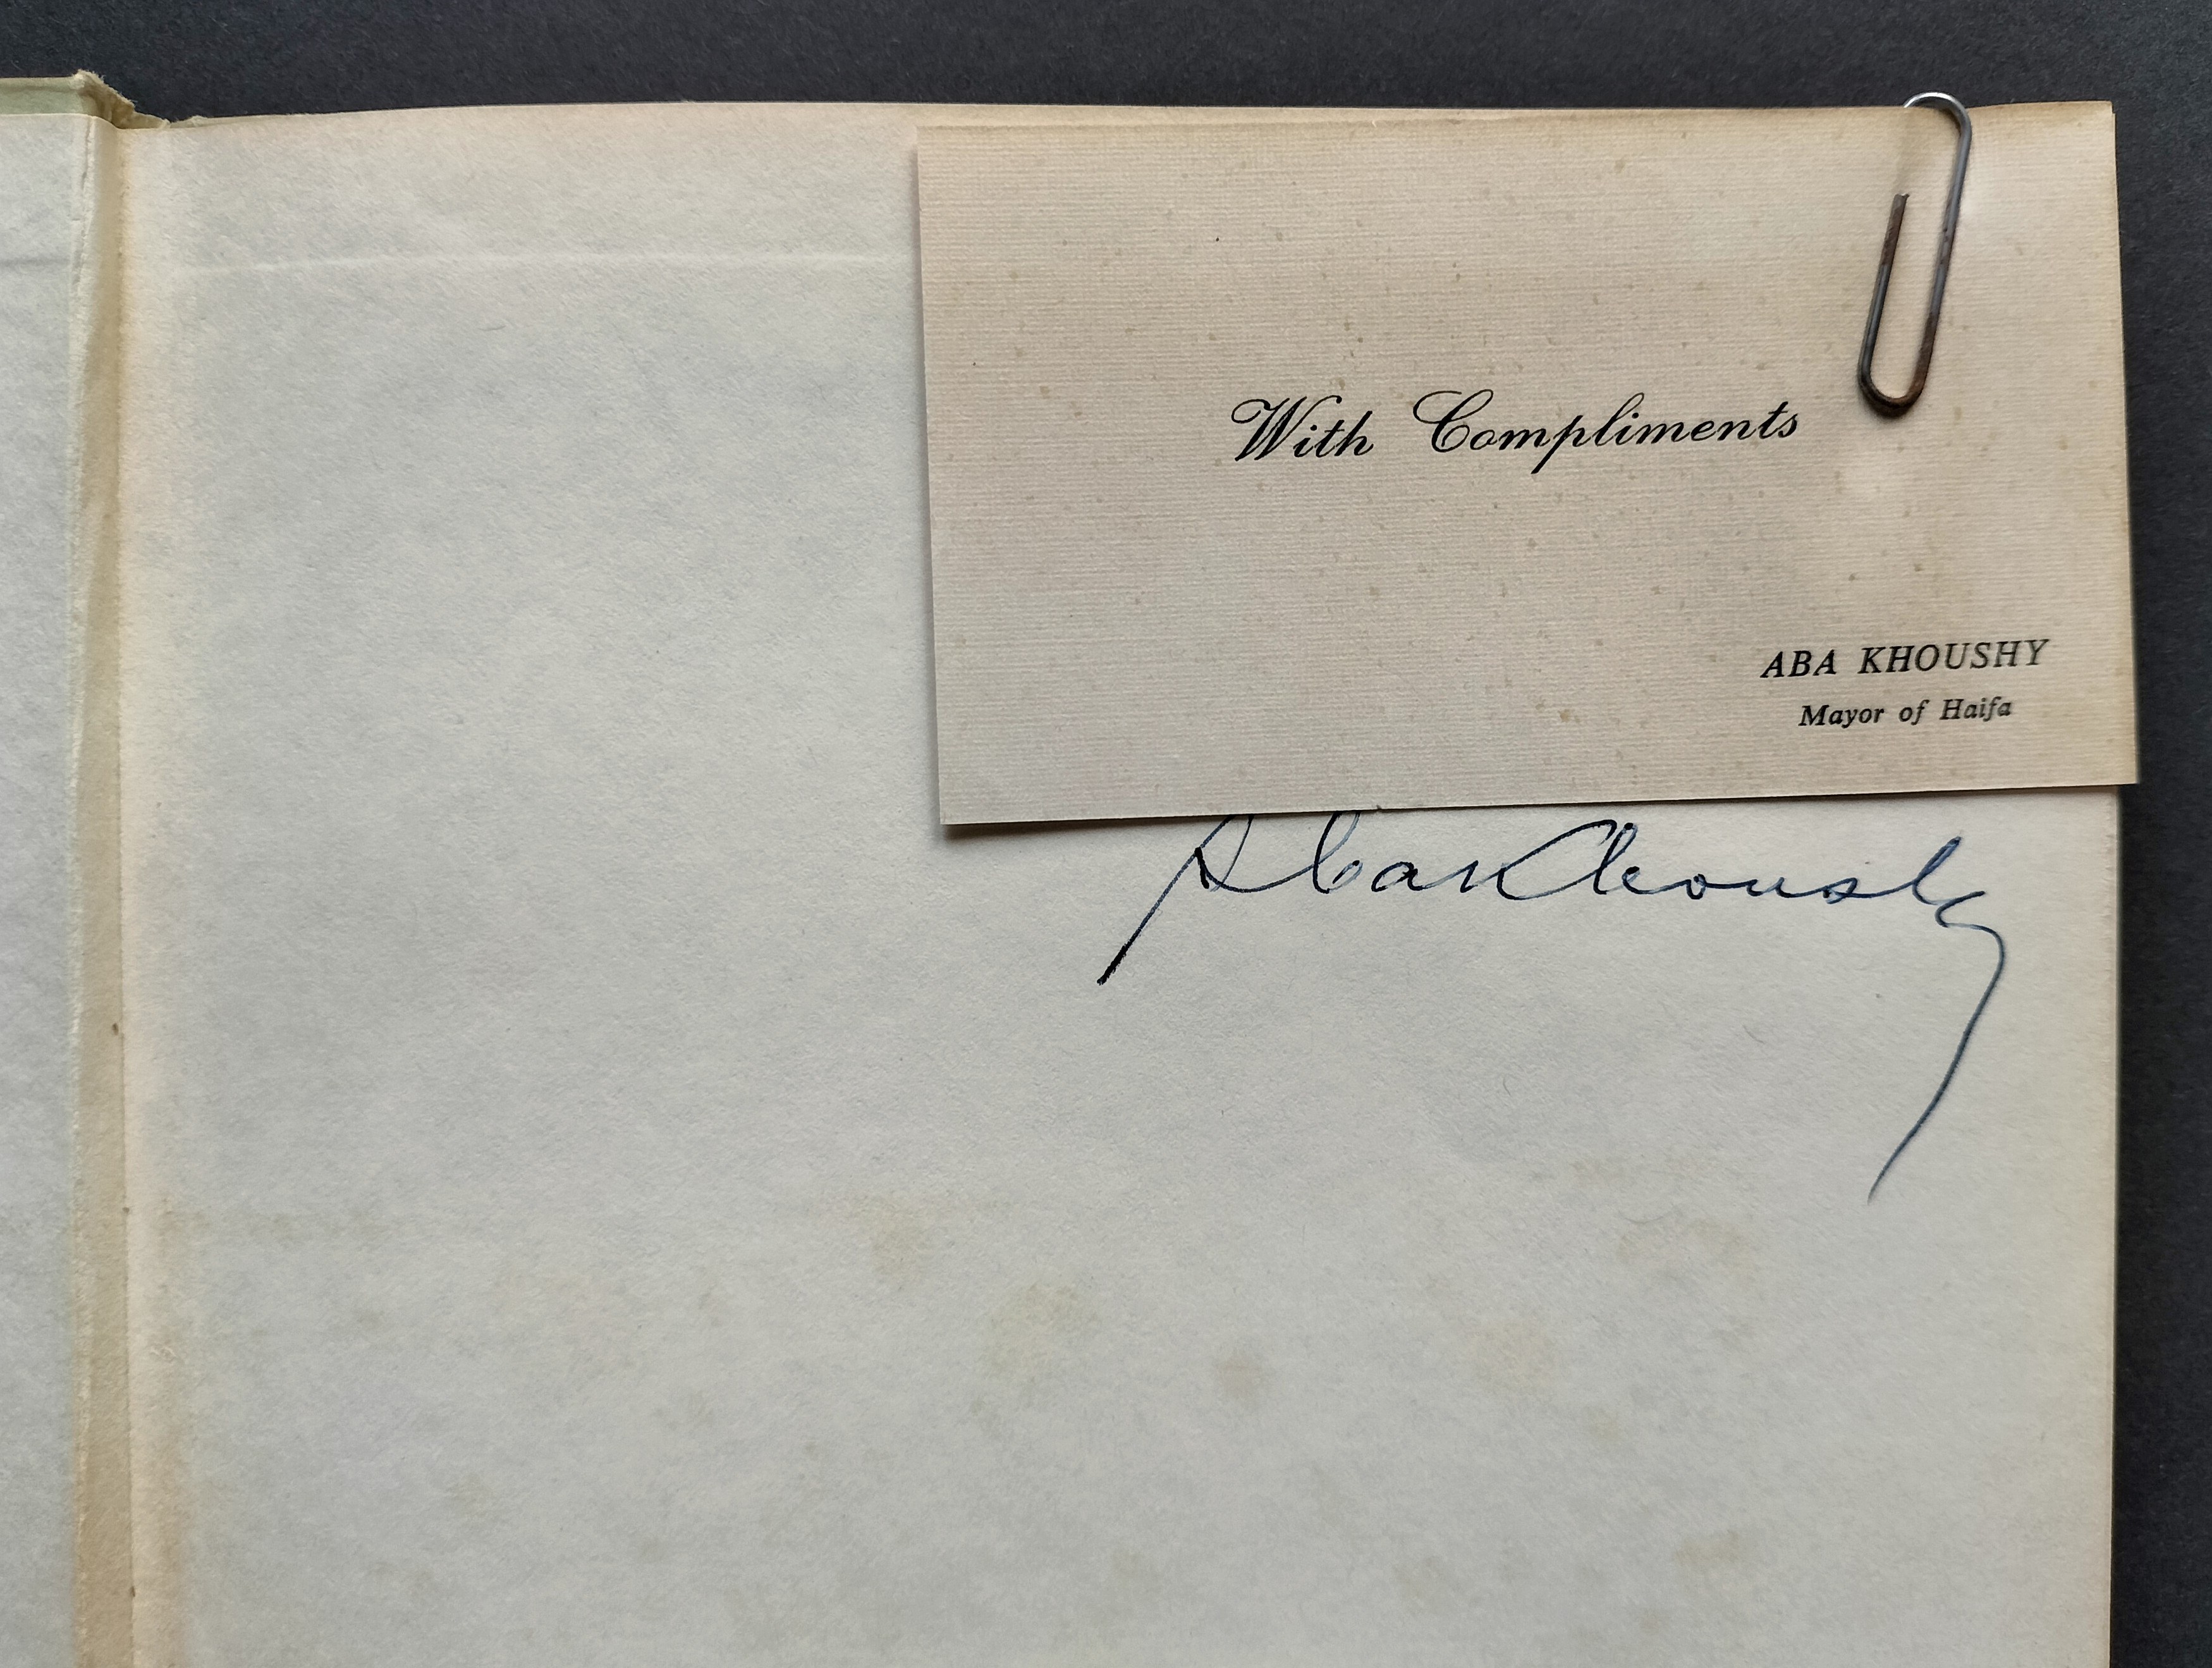 With Compliments
ABA KHOUSHY
Mayor of Haifa
Aba Khoushy